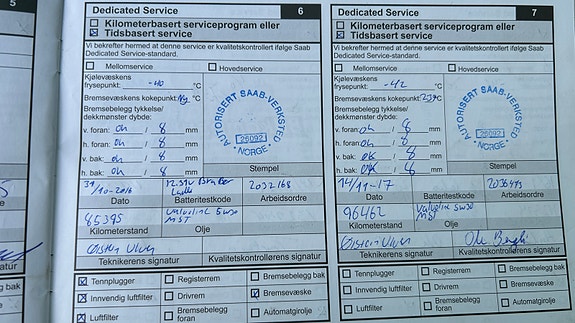 5
Dedicated Service
6
Kilometerbasert serviceprogram eller
Tidsbasert service
Vi bekrefter hermed at denne service er kvalitetskontrollert ifølge Saab
Dedicated Service-standard.
Mellomservice
Hovedservice
Kjølevæskens
frysepunkt: -40 °C
Bremsevæskens kokepunkt: Ny °C
Bremsebelegg tykkelse/
dekkmønster dybde:
v. foran: oh / 8 mm
h. foran: oh / 8 mm
v. bak: oh / 8 mm
h. bak: oh / 8 mm
AUTORISERT SAAB-VERKSTED
25092
NORGE
Stempel
31/10-2016
2032168
Dato
Batteritestkode
Arbeidsordre
85395
Valvoline 5w30
MST
Kilometerstand
Olje
Teknikerens signatur
Kvalitetskontrollørens signatur
Tennplugger
Registerrem
Bremsebelegg bak
Innvendig luftfilter
Drivrem
Bremsevæske
Luftfilter
Bremsebelegg
foran
Automatgirolje
Dedicated Service
7
Kilometerbasert serviceprogram eller
Tidsbasert service
Vi bekrefter hermed at denne service er kvalitetskontrollert ifølge Saab
Dedicated Service-standard.
Mellomservice
Hovedservice
Kjølevæskens
frysepunkt: -42 °C
Bremsevæskens kokepunkt: °C
Bremsebelegg tykkelse/
dekkmønster dybde:
v. foran: oh / 8 mm
h. foran: oh / 8 mm
v. bak: ok / 8 mm
h. bak: ok / 8 mm
AUTORISERT SAAB-VERKSTED
25092
NORGE
Stempel
14/11-17
Dato
Batteritestkode
Arbeidsordre
96462
Valvoline 5w30
MST
Kilometerstand
Olje
Teknikerens signatur
Kvalitetskontrollørens signatur
Tennplugger
Registerrem
Bremsebelegg bak
Innvendig luftfilter
Drivrem
Bremsevæske
Luftfilter
Bremsebelegg
foran
Automatgirolje